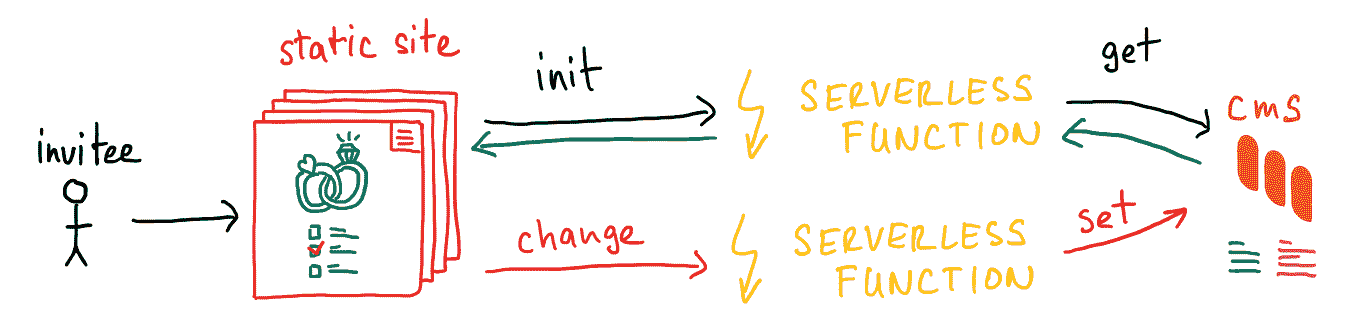 static site
invitee
init
SERVERLESS
FUNCTION
get
cms
change
SERVERLESS
FUNCTION
set